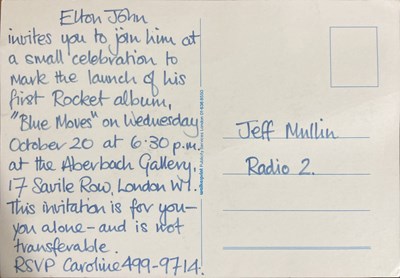 Elton John
invites you to join him at
a small celebration to
mark the launch of his
first Rocket album,
"Blue Moves" on Wednesday
October 20 at 6·30 p.m.
at the Aberbach Gallery,
17 Savile Row, London W1.
This invitation is for you—
you alone – and is not
transferable.
RSVP Caroline 499-9714.
Jeff Mullin
Radio 2.